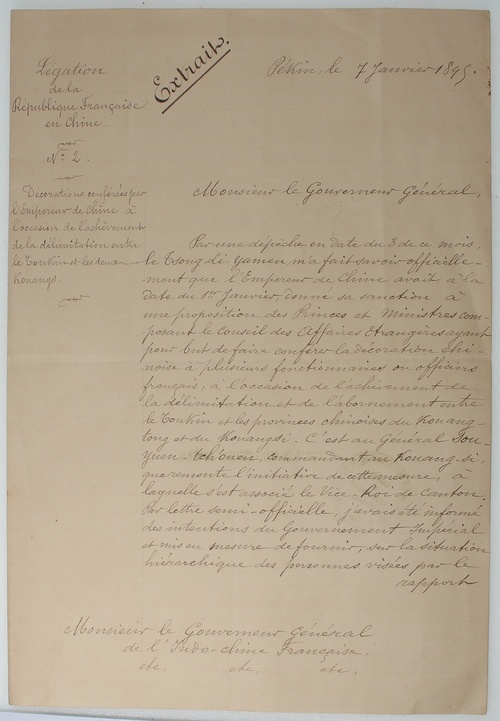 Extrait.
Pékin, le 7 Janvier 1895.
Légation
de la
République Française
en Chine.
N° 2.
Décorations conférées par
l'Empereur de Chine à
l'occasion de l'achèvement
de la délimitation entre
le Tonkin et les deux
Kouangs.
Monsieur le Gouverneur Général,
Par une dépêche en date du 3 de ce mois,
le Tsong-li Yamen m'a fait savoir officielle-
ment que l'Empereur de Chine avait, à la
date du 1er Janvier, donné sa sanction à
une proposition des Princes et Ministres com-
posant le Conseil des Affaires Etrangères ayant
pour but de faire conférer la décoration Chi-
noise à plusieurs fonctionnaires ou officiers
français, à l'occasion de l'achèvement de
la délimitation et de l'abornement entre
le Tonkin et les provinces chinoises du Kouang-
tong et du Kouangsi. C'est au Général Sou-
Yuen-tch'ouen, commandant au Kouang-si,
que remonte l'initiative de cette mesure, à
laquelle s'est associé le Vice-Roi de Canton.
Par lettre semi-officielle, j'avais été informé
des intentions du Gouvernement Impérial
et mis en mesure de fournir, sur la situation
hiérarchique des personnes visées par le
rapport
Monsieur le Gouverneur Général
de l'Indo-Chine Française,
etc, etc, etc,